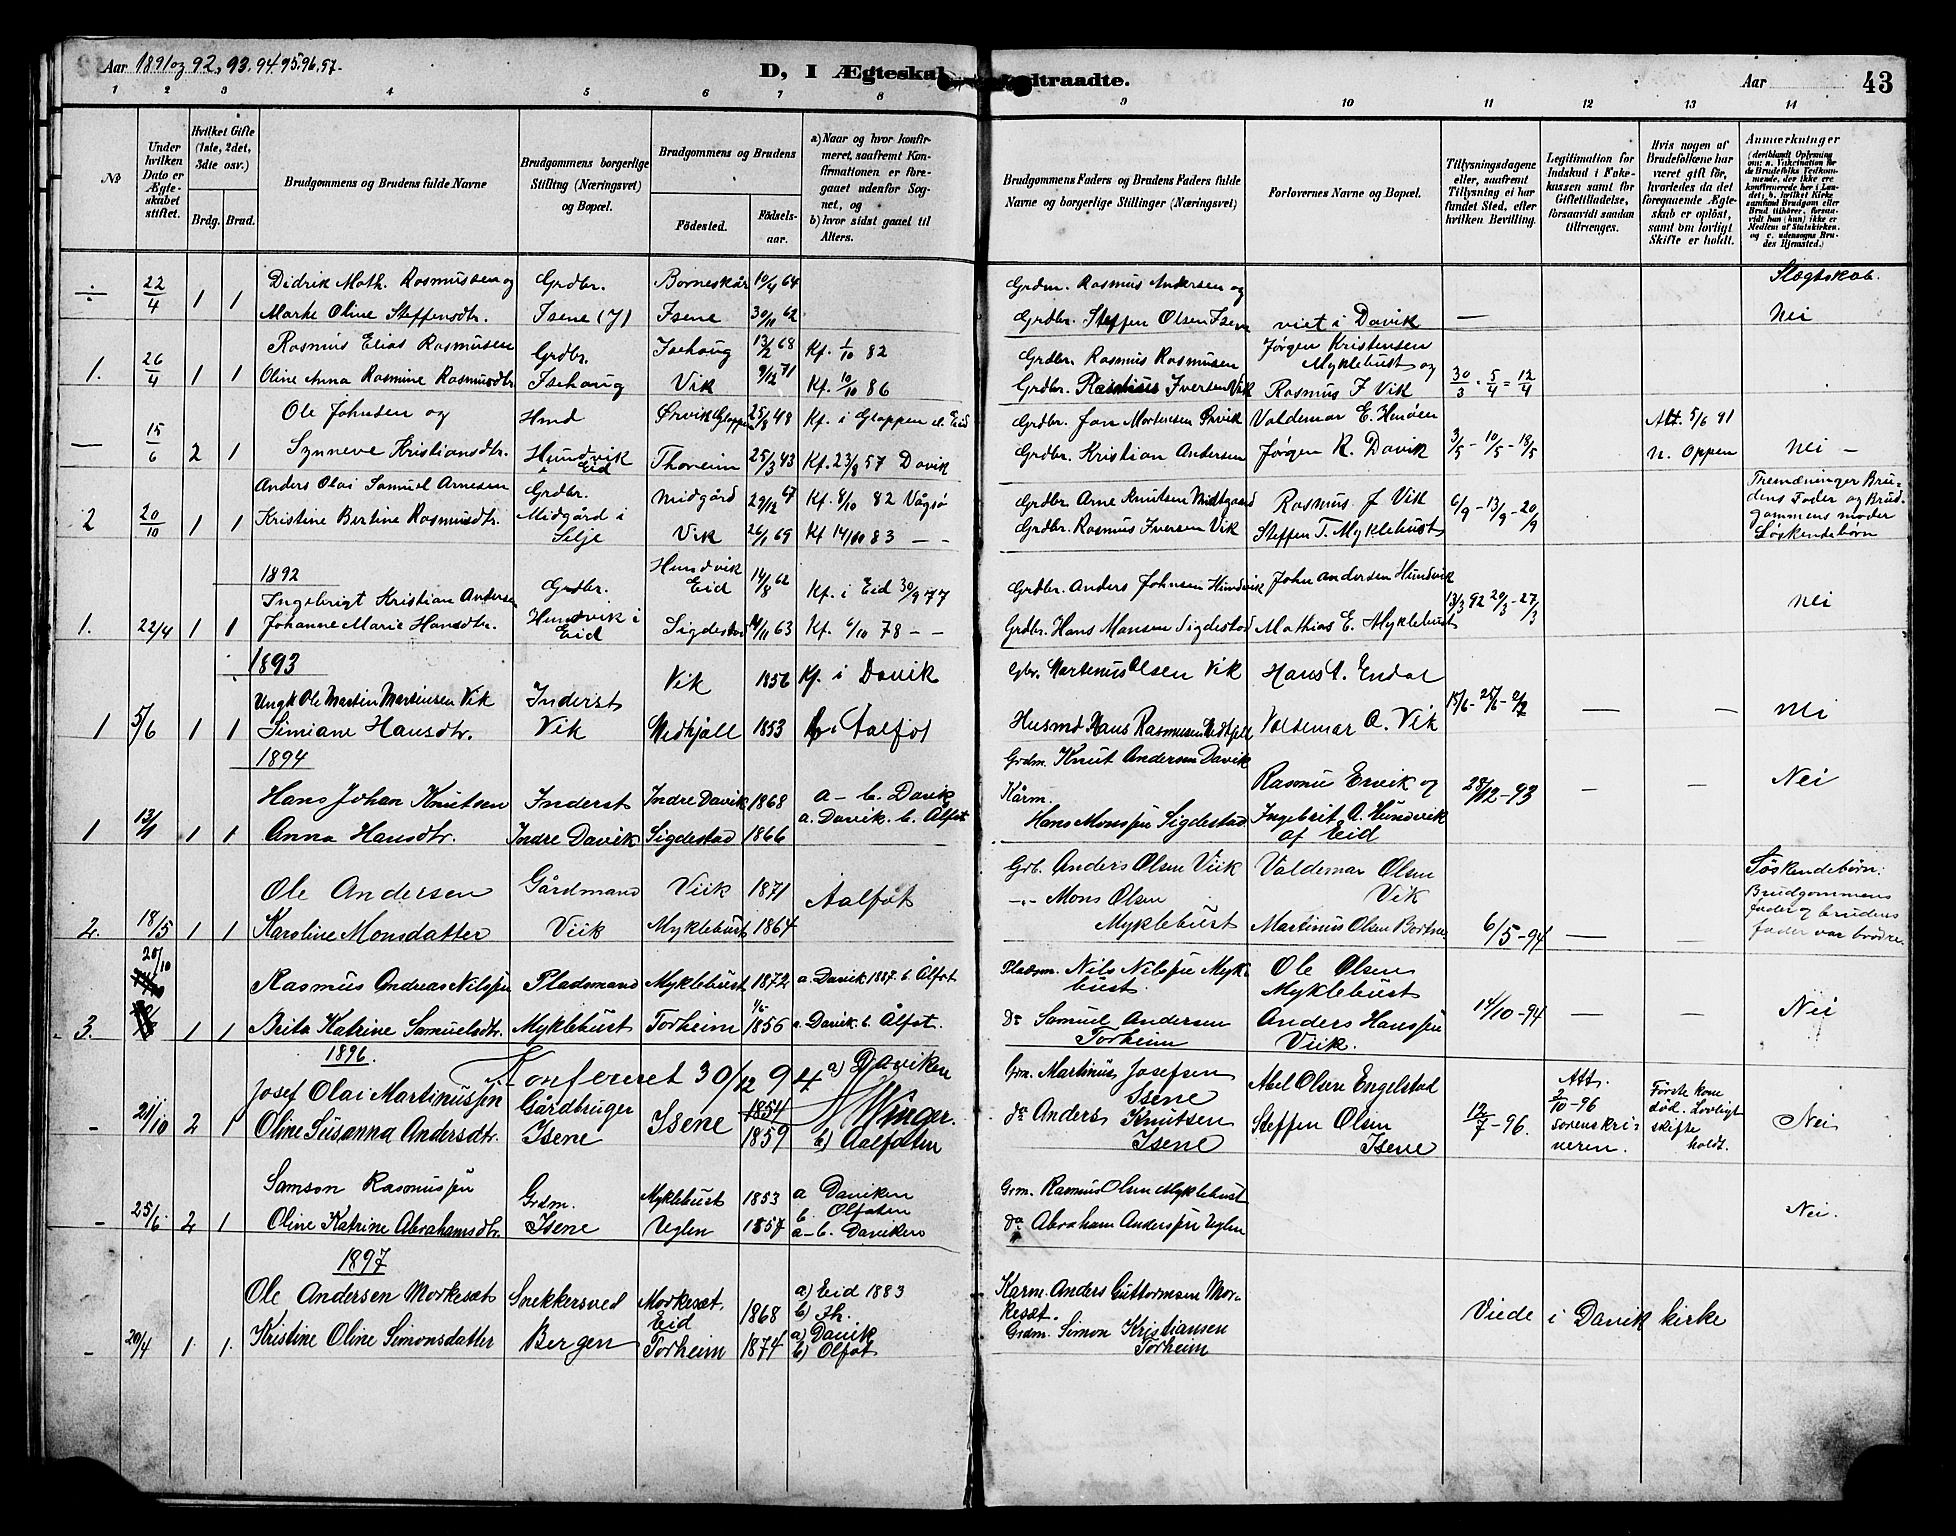 Aar 1891 og 92, 93. 94. 95. 96. 97.
D, I Ægteska
dtraadte.
Aar
43
1 2 3 4 5 6 7 8 9 10 11 12 13 14
No
Under hvilken Dato er Ægteskabet stiftet.
Hvilket Gifte (1ste, 2det, 3die osv.)
Brdg.
Brud.
Brudgommens og Brudens fulde Navne
Brudgommens borgerlige Stilling (Næringsvei) og Bopæl.
Brudgommens og Brudens
Fødested.
Fødselsaar.
a) Naar og hvor konfirmeret, saafremt Konfirmationen er foregaaet udenfor Sognet, og
b) hvor sidst gaaet til Alters.
Brudgommens Faders og Brudens Faders fulde Navne og borgerlige Stillinger (Næringsvei)
Forlovernes Navne og Bopæl.
Tillysningsdagene eller, saafremt Tillysning ei har fundet Sted, efter hvilken Bevilling.
Legitimation for Indskud i Enkekassen samt for Giftetilladelse, forsaavidt saadan tiltrænges.
Hvis nogen af Brudefolkene har været gift før, hvorledes da det foregaaende Ægteskab er opløst, samt om lovligt Skifte er holdt.
Anmærkninger
÷ 22/4 1 1 Didrik Math. Rasmussen og Grdbr. Borneskår 10/4 64 Grdm. Rasmus Andersen og Slegtskab.
Marte Oline Steffensdtr. Isene (7) Isene 30/11 62 Grdbr. Steffen Olsen Isene viet i Davik — Nei
Rasmus Elias Rasmusen Grdbr. Isehoug 13/2 68 Kf. 1/10 82 Grdbr. Rasmus Rasmusen Jørgen Kristensen Myklebust og
1. 26/4 1 1 Oline Anna Rasmine Rasmusdtr. Isehoug Vik 9/12 71 Kf. 10/10 86 Grdbr. Rasmus Iversen Vik Rasmus J Vik 30/3 - 5/4 = 12/4
Ole Johnsen og Hmd Ørvik Gloppen 25/8 48 Kf. i Gloppen d. Eid Grdbr. Jon Mortensen Ørvik Valdemar E. Henøen Att. 5/6 91
— 15/6 2 1 Synneve Kristiansdtr. Hundvik i Eid Thoreim 25/3 43 Kf. 23/8 57 Davik Grdbr. Kristian Andersen Jørgen R. Davik 3/5 - 10/5 - 18/5 n. Oppen Nei —
Anders Olai Samuel Arnesen Grdbr. Midgård 29/12 67 Kf. 8/10 82 Vågsø Grdbr. Arne Knutsen Midtgaard Rasmus J Vik 6/9 - 13/9 - 20/9 Tremæninger Brudens Fader og Brudgommens moder Søskendebørn
2 20/10 1 1 Kristine Bertine Rasmusdtr. Midgård i Selje Vik 26/1 69 Kf 14/10 83 — - Grdbr. Rasmus Iversen Vik Steffen T. Myklebust
1892
Ingebrigt Kristian Andersen Grdbr. Hundvik Eid 14/8 62 Kf. i Eid 30/9 77 Grdbr. Anders Johnsen Hundvik John Andersen Hundvik 13/3 92 20/3 - 27/3 Nei
1. 22/4 1 1 Johanne Marie Hansdtr. Hundvik i Eid Sigdestad 14/11 63 Kf. 6/10 78 - - Grdbr. Hans Monsen Sigdestad Mathias E. Myklebust
1893
Ungk Ole Martin Martinusen Vik Inderst Vik 1856 Kf. i Davik Gbr. Martenus Olsen Vik Hans A. Endal
1 5/6 1 1 Simiane Hansdtr. Vik Medhjåll 1853 i Aalfot Husmd Hans Rasmusen Valdemar A. Vik — — Nei
1894
Hans Johan Knutsen Inderst Indre Davik 1868 a - b. Davik Grdm. Knut Andersen Davik Rasmus Ervik og 28/12-93 — — Nei
1 13/1 1 1 Anna Hansdtr. Indre Davik Sigdestad 1866 a. Davik. b. Ålfot Kårm. Hans Monssen Sigdestad Ingebrit A. Hundvik af Eid
Ole Andersen Gårdmand Viik 1871 Aalfot Grb. Anders Olsen Viik Valdemar Olsen Vik Søskendebørn: Brudgommens fader og brudens fader var brødre
2. 18/5 1 1 Karoline Monsdatter Viik Myklebust 1864 -,- Mons Olsen Myklebust Martinus Olsen Bortne 6/5-94 — —
20/10 Rasmus Andreas Nilssen Pladsmand Myklebust 1872 a. Davik 1887. b. Ålfot Pladsm. Nils Nilssen Myklebust Ole Olsen Myklebust
3. 1 1 Brita Katrine Samuelsdtr. Myklebust Torheim 1856 a. Davik. b. Ålfot. do Samuel Andersen Torheim Anders Hanssen Viik. 14/10-94 — — Nei
1896.
Konfereret 30/12 94 a) Daviken
Josef Olai Martinussen Gårdbruger Isene 1854 Winger. Grm. Martinus Josefsen Isene Abel Olsen Engelstad Att. 2/10-96 Første kone død. Lovligt skifte holdt.
- 21/10 2 1 Oline Susanna Andersdtr. Isene 1859 b) Aalfoten do Anders Knutsen Isene Steffen Olsen Isene 12/7-96. sorenskriveren. Nei
Samson Rasmussen Grdm. Myklebust 1853 a Daviken b. Olfoten Grm. Rasmus Olsen Myklebust
- 25/6 2 1 Oline Katrine Abrahamsdtr. Isene Uglen 1857 a-b. Daviken do Abraham Anderssen Uglen Nei.
1897
Ole Andersen Morkesæt Snekkersved Morkesæt. Eid 1868 a) Eid 1883 b) Th. Karm. Anders Guttormsen Morkesæt. Viede i Davik kirke
- 20/4 1. 1. Kristine Oline Simonsdatter Bergen Torheim 1874 a) Davik b) Olfot Grdm. Simon Kristiansen Torheim